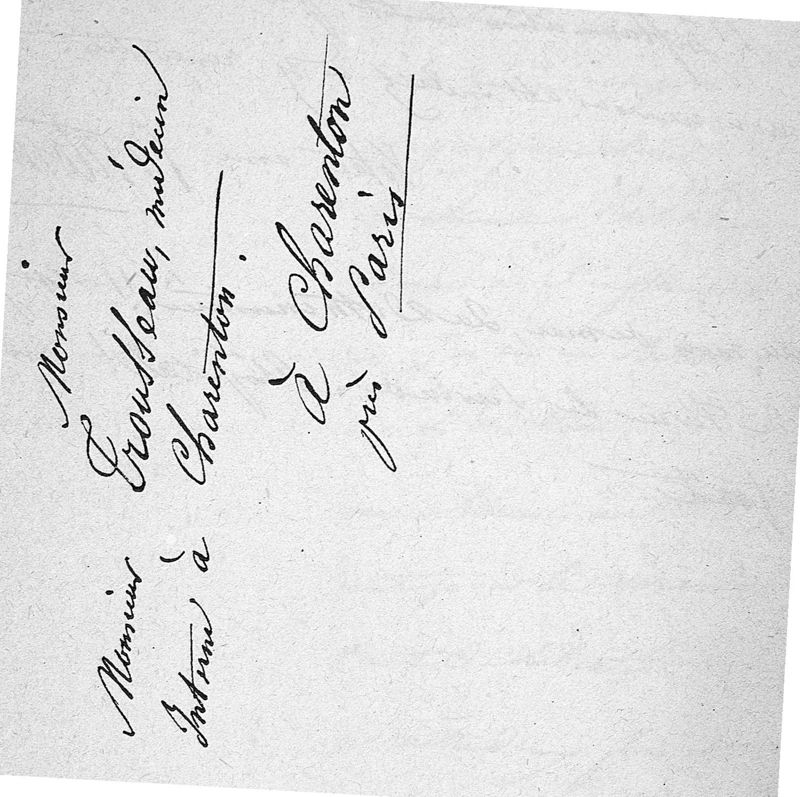 Monsieur
Monsieur Trousseau, médecin
Interne à Charenton.
à Charenton
près Paris